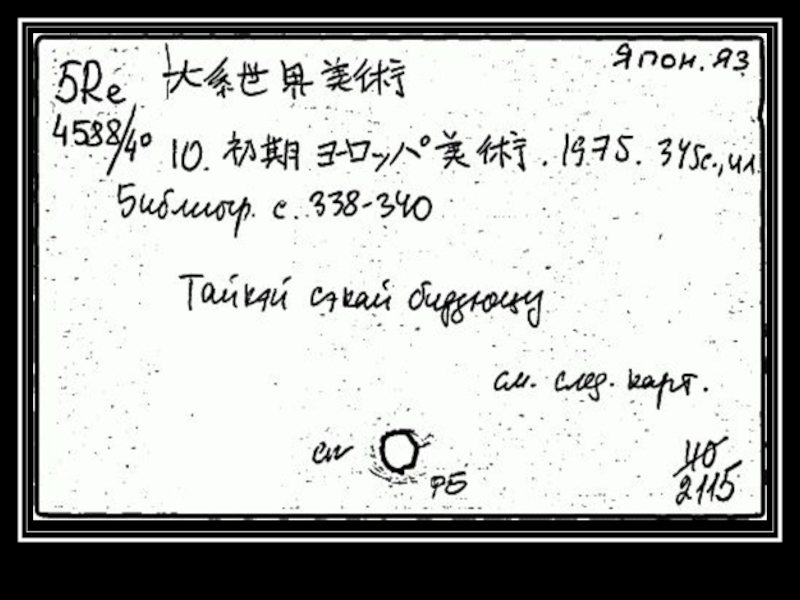 Япон. яз
5Re 大系世界美術
4588/4° 10. 初期ヨーロッパ美術. 1975. 345с., ил
Библиогр. с. 338-340
Тайкэй сэкай бидзюцу
см. след. карт.
сп
РБ
40
2115